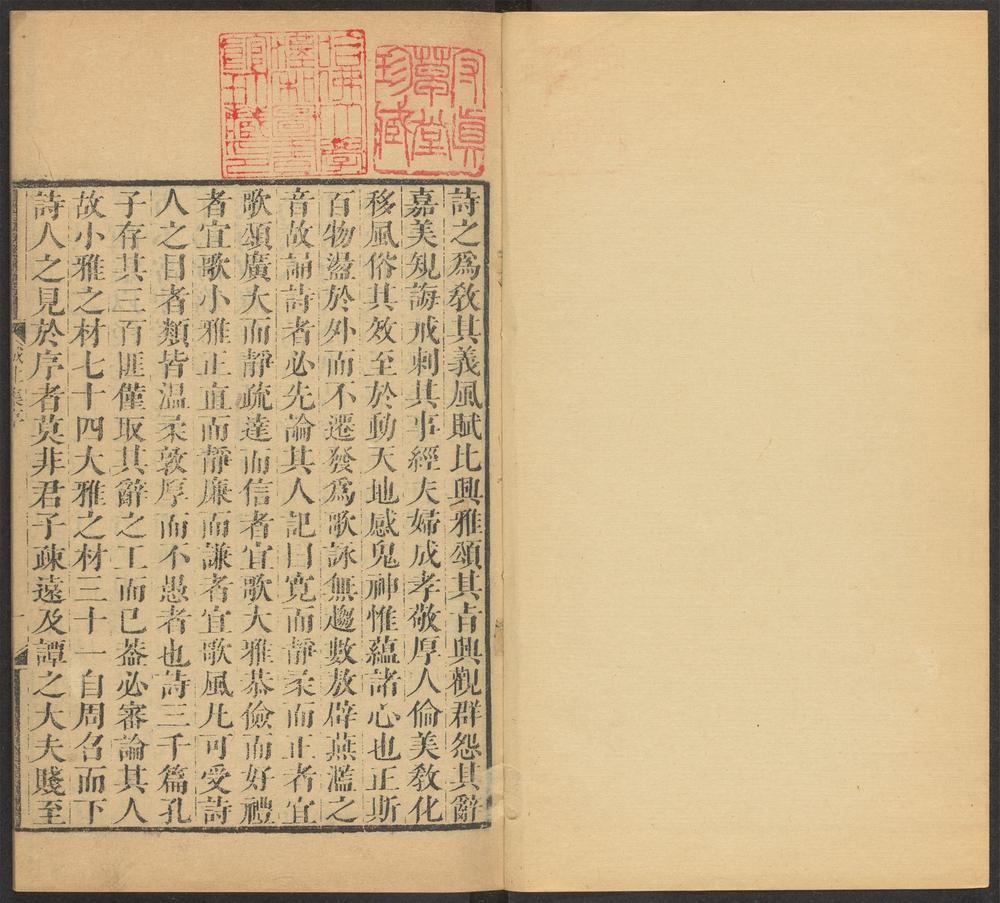 守眞草堂珍藏
哈佛大學漢和圖書館珍藏印
詩之爲敎其義風賦比興雅頌其旨興觀群怨其辭
嘉美規誨戒刺其事經夫婦成孝敬厚人倫美敎化
移風俗其效至於動天地感鬼神惟蘊諸心也正斯
百物盪於外而不遷發爲歌詠無趨數敖辟燕濫之
音故誦詩者必先論其人記曰寬而靜柔而正者宜
歌頌廣大而靜疏達而信者宜歌大雅恭儉而好禮
者宜歌小雅正直而靜廉而謙者宜歌風凡可受詩
人之目者類皆温柔敦厚而不愚者也詩三千篇孔
子存其三百匪僅取其辭之工而已葢必審論其人
故小雅之材七十四大雅之材三十一自周召而下
詩人之見於序者莫非君子疎遠及譚之大夫賤至
集序
一